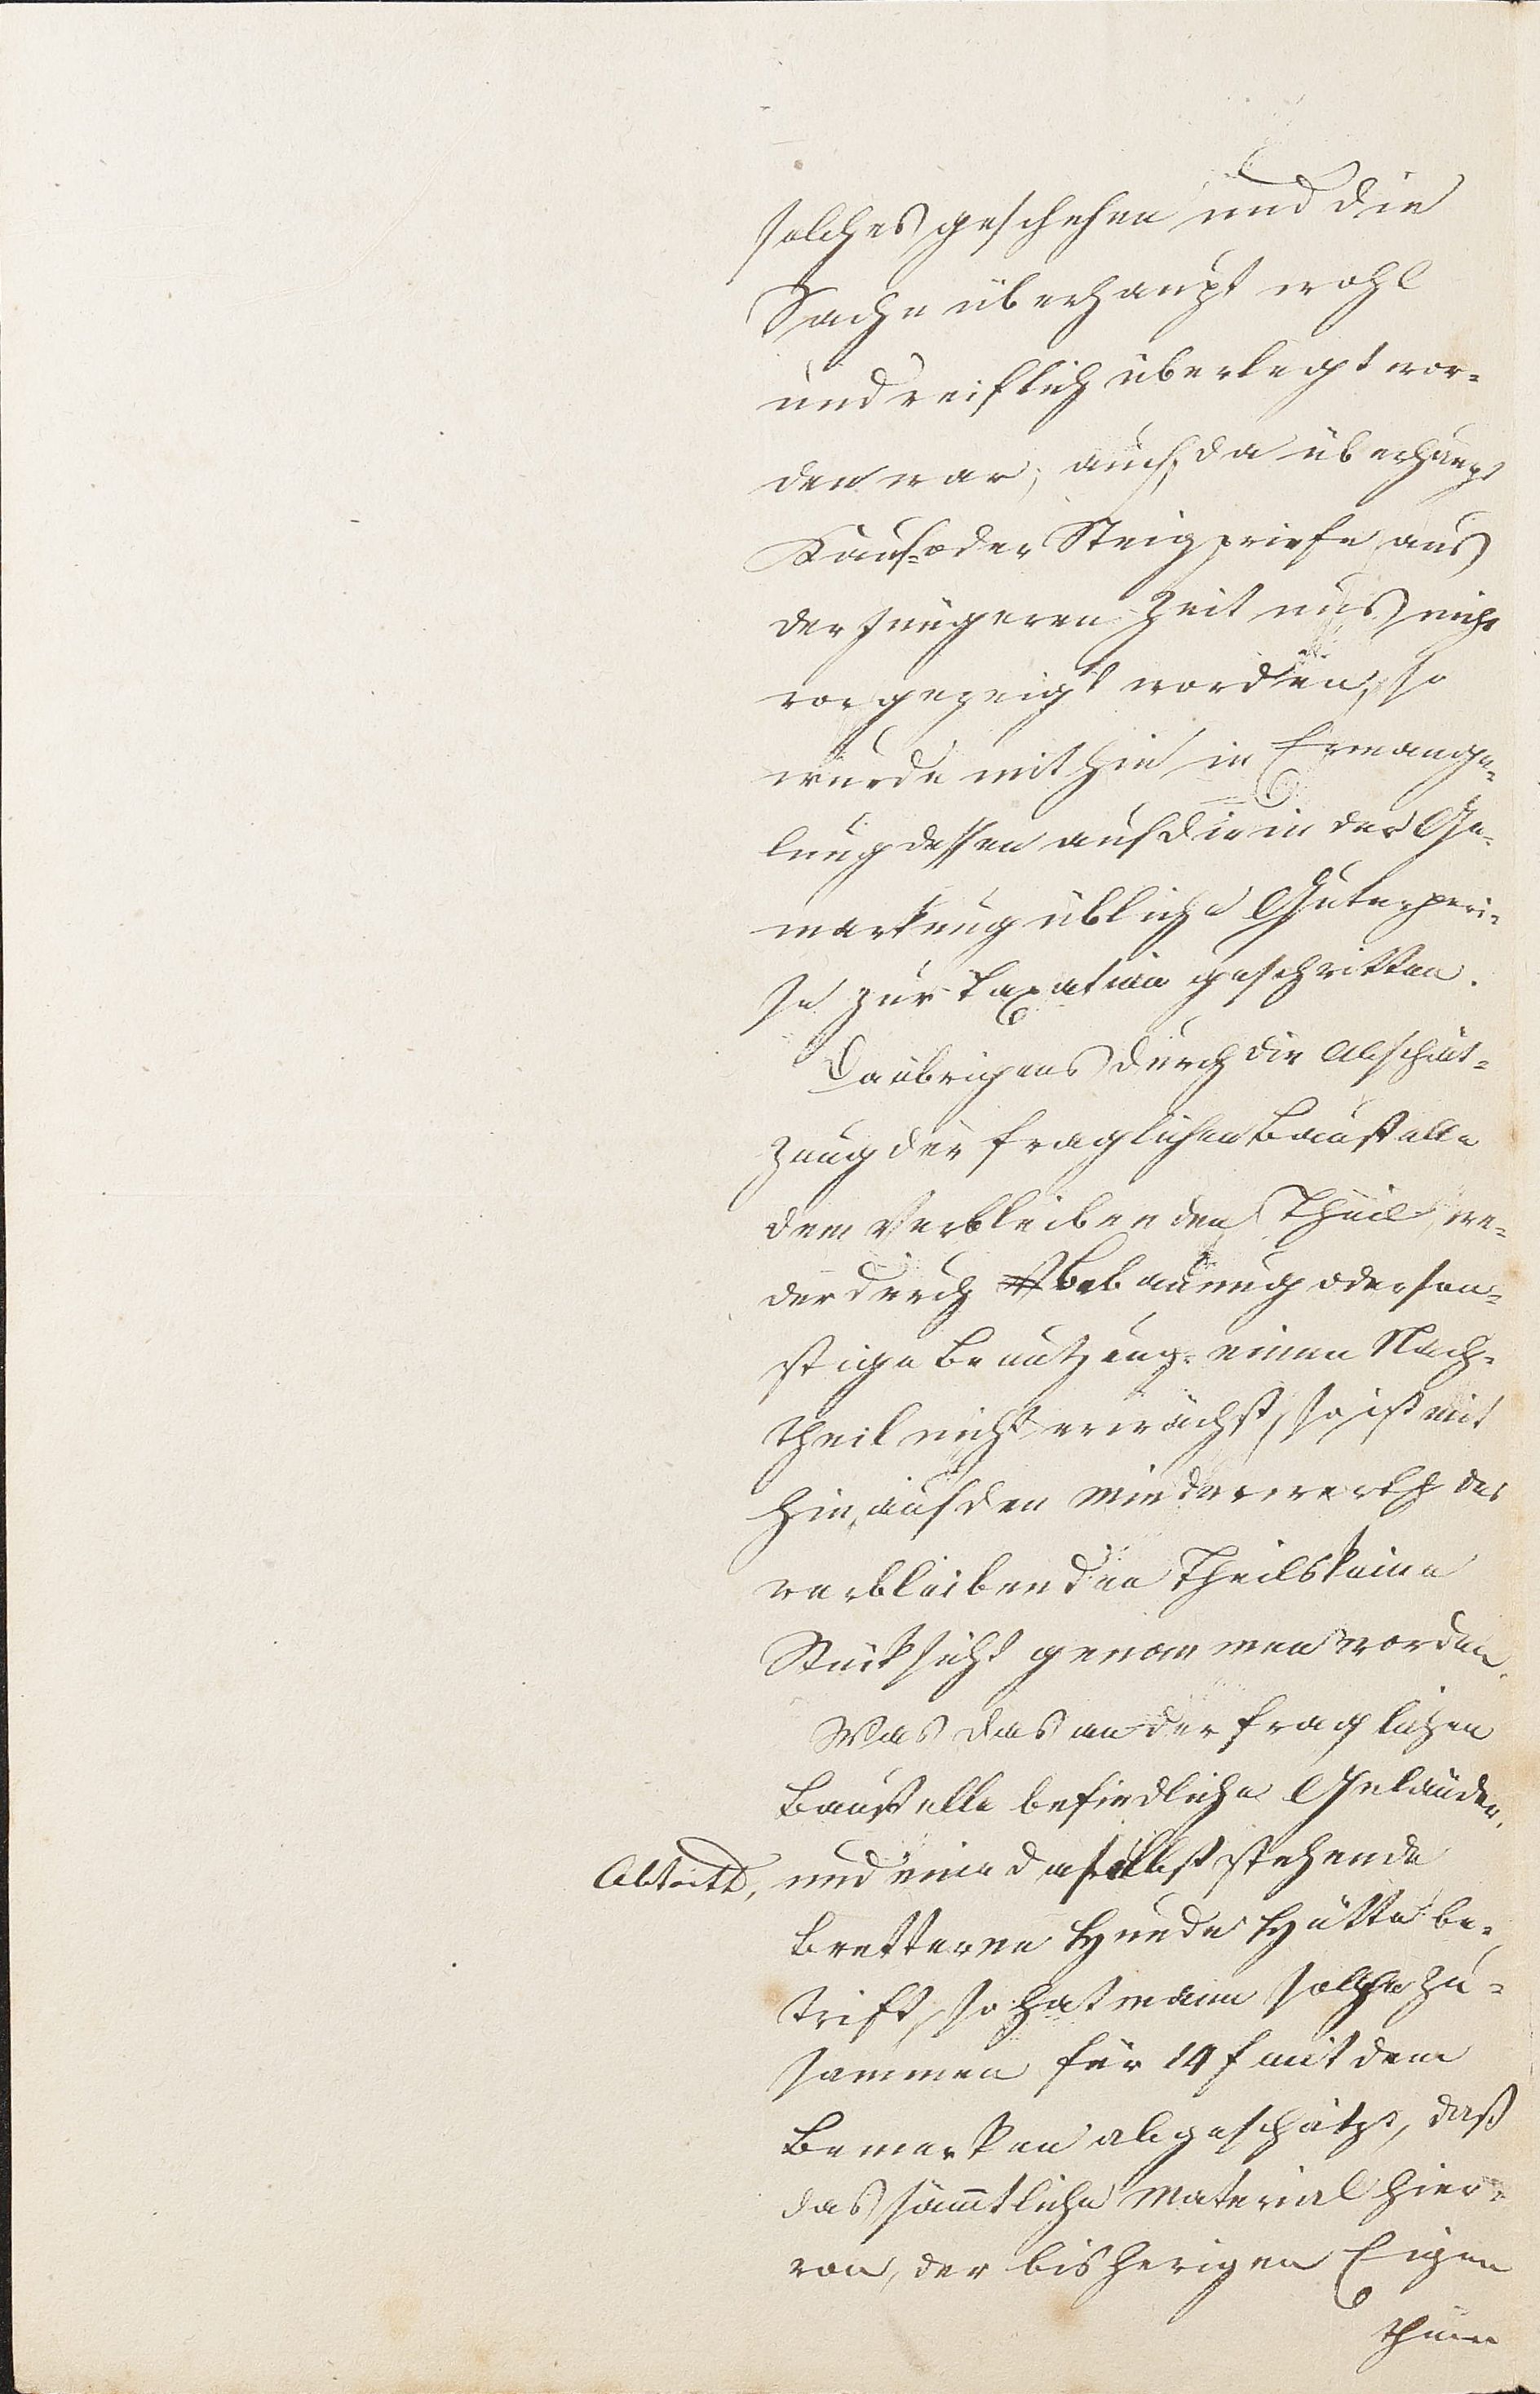 solches geschehen und die
Sache überhaupt wohl
und reiflich überlegt wor-
den war; auch, da überhaupt
Kauf- oder Steigpreise aus
der jüngeren Zeit uns nicht
vorgezeigt worden, so
wurde mithin in Ermange-
lung dessen auf die in der Ge-
markung übliche Güterprei-
se zur Taxation geschritten.
Da übrigens durch die Abschät-
zung der fraglichen Baustelle
dem verbleibenden Theil, we-
der durch Bebauung oder son-
stige Benutzung einen Nach-
theil nicht erwächst, so ist mit
hin, auf den Minderwerth des
verbleibenden Theils keine
Rücksicht genommen worden.
Was das an der fraglichen
Baustelle befindliche Geländer,
Abtritt, und eine daselbst stehende
bretterne Hunde Hütte be-
trift, so hat mann solche zu-
sammen für 14 f mit dem
Bemerken abgeschätzt, daß
das sämtliche Material hier-
von, der bisherigen Eigen
thüme